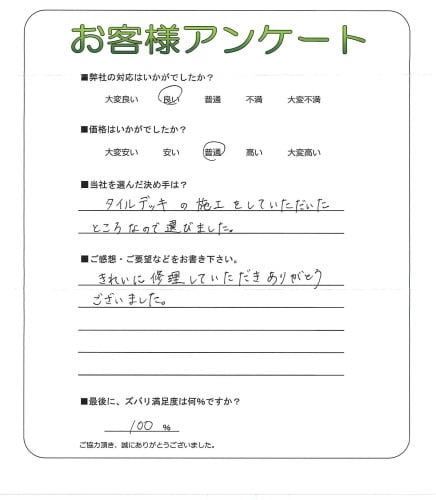 お客様アンケート
■弊社の対応はいかがでしたか？
大変良い 良い 普通 不満 大変不満
■価格はいかがでしたか？
大変安い 安い 普通 高い 大変高い
■当社を選んだ決め手は？
タイルデッキの施工をしていただいた
ところなので選びました。
■ご感想・ご要望などをお書き下さい。
きれいに修理していただきありがとう
ございました。
■最後に、ズバリ満足度は何％ですか？
100 %
ご協力頂き、誠にありがとうございました。